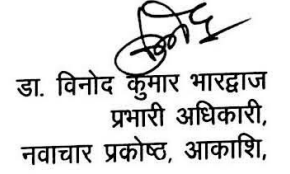 डा. विनोद कुमार भारद्वाज
प्रभारी अधिकारी,
नवाचार प्रकोष्ठ, आकाशि,